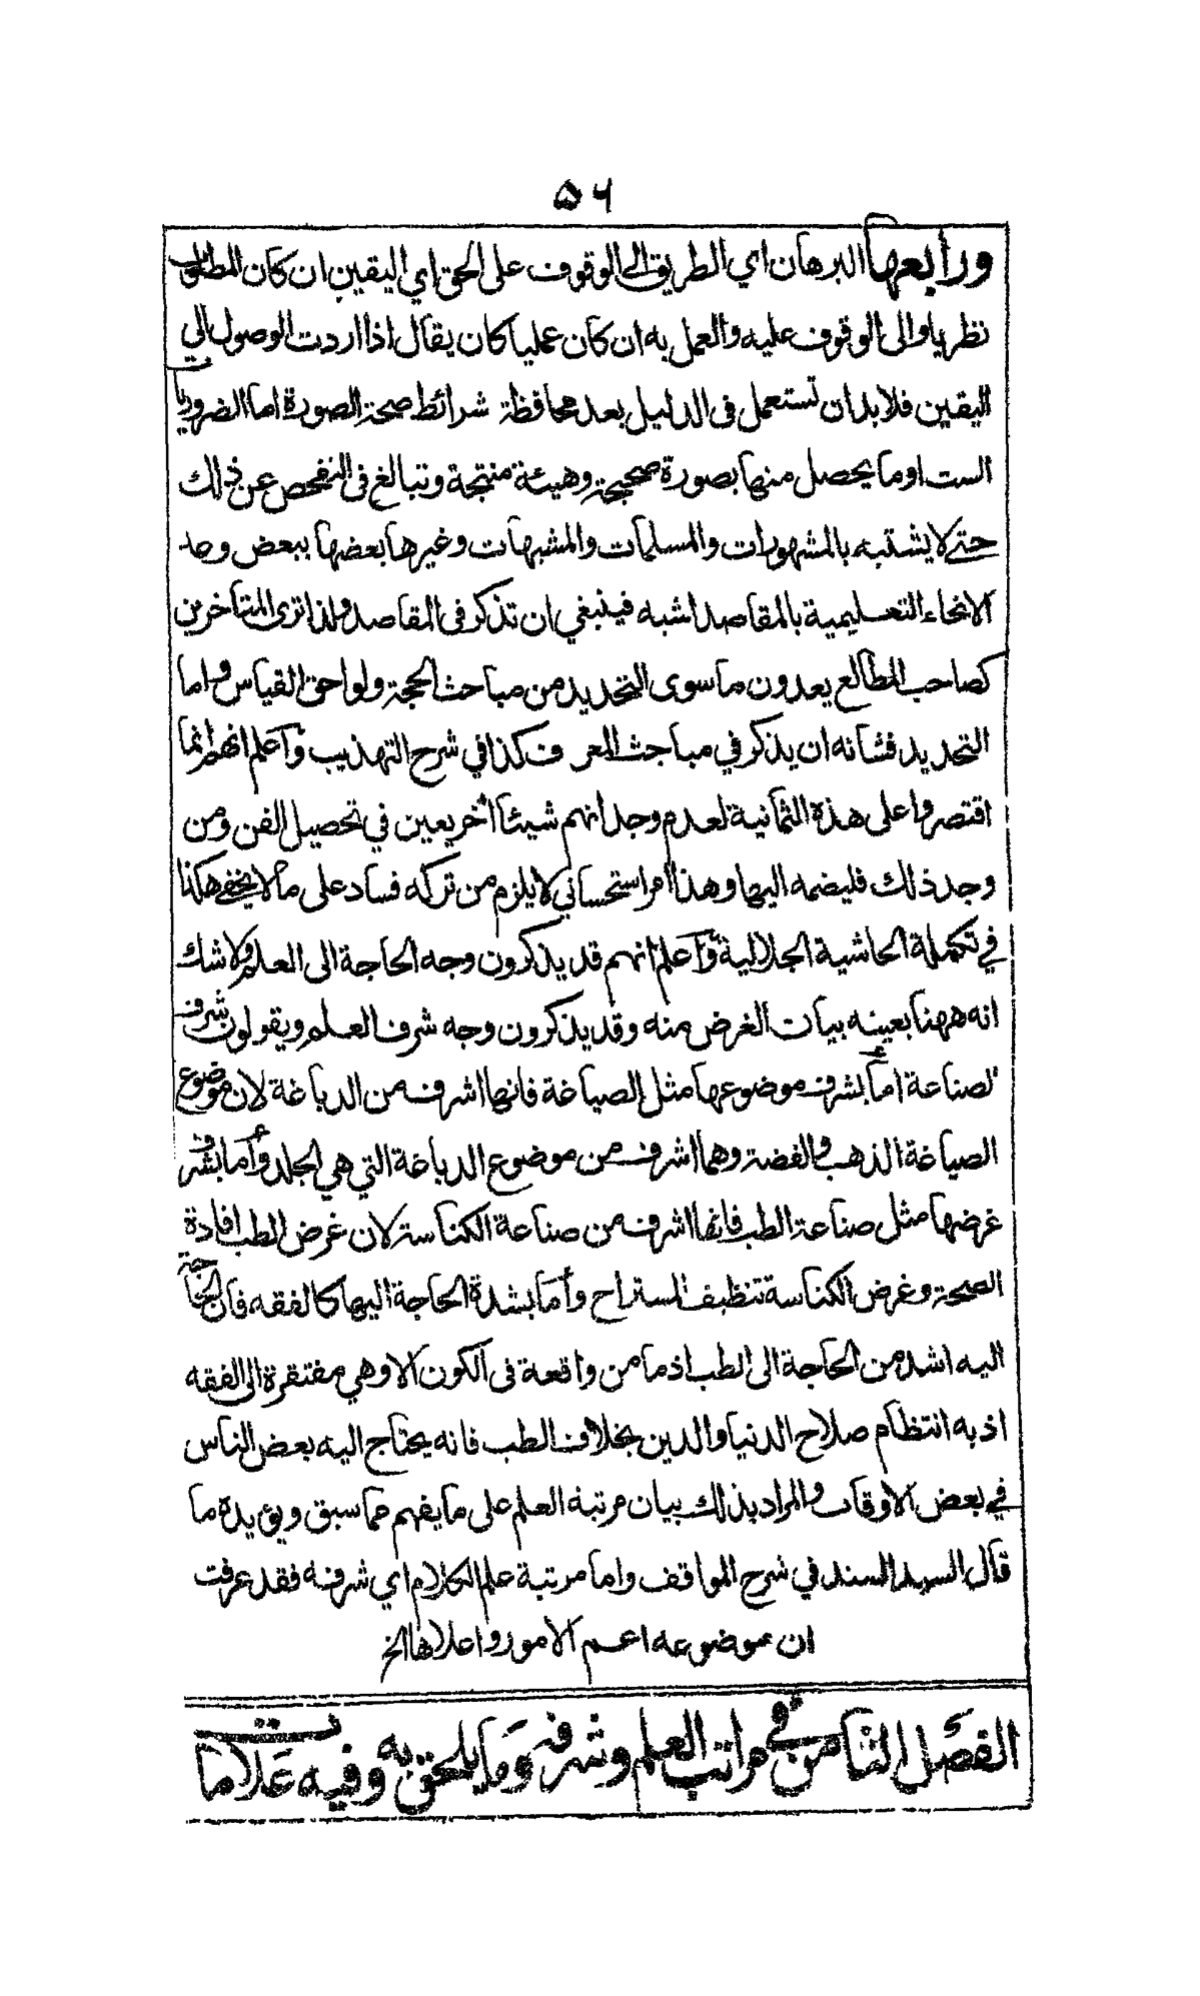 ۵۶
ورابعها البرهان اي الطريق الى الوقوف على الحق اي اليقين ان كان المطلوب
نظريا والى الوقوف عليه والعمل به ان كان عمليا كان يقال اذا اردت الوصول الى
اليقين فلا بد ان تستعمل في الدليل بعد محافظة شرائط صحة الصورة اما الضروريات
الست او ما يحصل منها بصورة صحيحة وهيئة منتجة وتبالغ في التفحص عن ذلك
حتى لا يشتبه بالمشهورات والمسلمات والمشبهات وغيرها بعضها ببعض وعد
الانحاء التعليمية بالمقاصد اشبه فينبغي ان تذكر في المقاصد ولذا ترى المتأخرين
كصاحب المطالع يعدون ما سوى التحديد من مباحث الحجة ولواحق القياس واما
التحديد فشأنه ان يذكر في مباحث المعرف كذا في شرح التهذيب وأعلم انهم انما
اقتصروا على هذه الثمانية لعدم وجدانهم شيئا آخر يعين في تحصيل الفن ومن
وجد ذلك فليضمه اليها وهذا أمر استحساني لا يلزم من تركه فساد على ما لا يخفى هكذا
في تكملة الحاشية الجلالية وأعلم انهم قد يذكرون وجه الحاجة الى العلم ولا شك
انه ههنا بعينه بيان الغرض منه وقد يذكرون وجه شرف العلم ويقولون شرف
لصناعة اما بشرف موضوعها مثل الصياغة فانها اشرف من الدباغة لان موضوع
الصياغة الذهب والفضة وهما اشرف من موضوع الدباغة التي هي الجلد وأما بشرف
غرضها مثل صناعة الطب فانها اشرف من صناعة الكناسة لان غرض الطب افادة
الصحة وغرض الكناسة تنظيف المستراح وأما بشدة الحاجة اليها كالفقه فان الحاجة
اليه اشد من الحاجة الى الطب اذ ما من واقعة في الكون الا وهي مفتقرة الى الفقه
اذ به انتظام صلاح الدنيا والدين بخلاف الطب فانه يحتاج اليه بعض الناس
في بعض الاوقات والمراد بذلك بيان مرتبة العلم على ما يفهم مما سبق ويؤيده ما
قال السيد السند في شرح المواقف واما مرتبة علم الكلام اي شرفه فقد عرفت
ان موضوعه اعم الامور واعلاها الخ
الفصل الثامن في مراتب العلم وشرفه وما يلحق به وفيه علامات